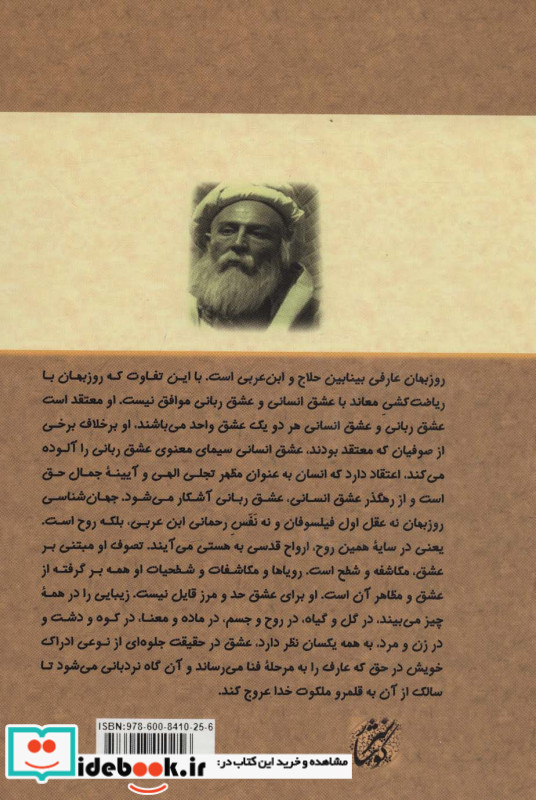 روزبهان عارفی بینابین حلاج و ابن‌عربی است. با این تفاوت که روزبهان با
ریاضت‌کشیِ معاند با عشق انسانی و عشق ربانی موافق نیست. او معتقد است
عشق ربانی و عشق انسانی هر دو یک عشق واحد می‌باشند، او برخلاف برخی
از صوفیان که معتقد بودند، عشق انسانی سیمای معنوی عشق ربانی را آلوده
می‌کند، اعتقاد دارد که انسان به عنوان مظهر تجلی الهی و آیینهٔ جمال حق
است و از رهگذر عشق انسانی، عشق ربانی آشکار می‌شود. جهان‌شناسی
روزبهان نه عقل اول فیلسوفان و نه نَفَسِ رحمانی ابن عربی، بلکه روح است.
یعنی در سایهٔ همین روح، ارواح قدسی به هستی می‌آیند. تصوف او مبتنی بر
عشق، مکاشفه و شطح است. رویاها و مکاشفات و شطحیات او همه بر گرفته از
عشق و مظاهر آن است. او برای عشق حد و مرز قایل نیست. زیبایی را در همهٔ
چیز می‌بیند، در گل و گیاه، در روح و جسم، در ماده و معنا، در کوه و دشت و
در زن و مرد، به همه یکسان نظر دارد. عشق در حقیقت جلوه‌ای از نوعی ادراک
خویش در حق که عارف را به مرحلهٔ فنا می‌رساند و آن گاه نردبانی می‌شود تا
سالک از آن به قلمرو ملکوت خدا عروج کند.
ISBN: 978-600-8410-25-6
مشاهده و خرید این کتاب در:
idebook.ir